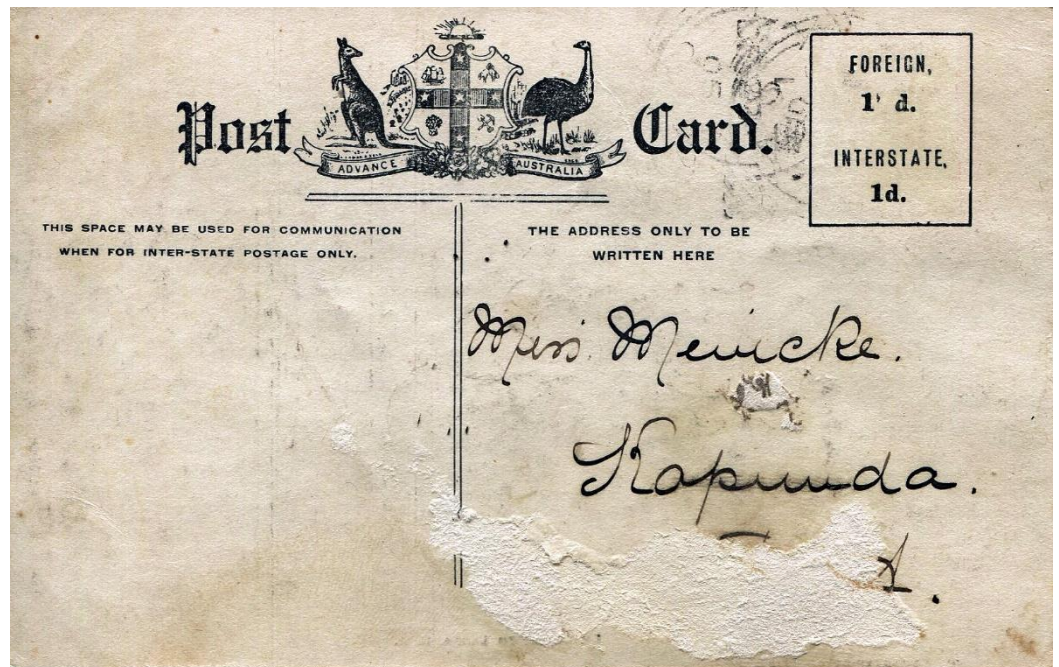 Post Card.
ADVANCE AUSTRALIA
FOREIGN,
1 d.
INTERSTATE,
1d.
THIS SPACE MAY BE USED FOR COMMUNICATION
WHEN FOR INTER-STATE POSTAGE ONLY.
THE ADDRESS ONLY TO BE
WRITTEN HERE
Miss Meincke.
Kapunda.
A.